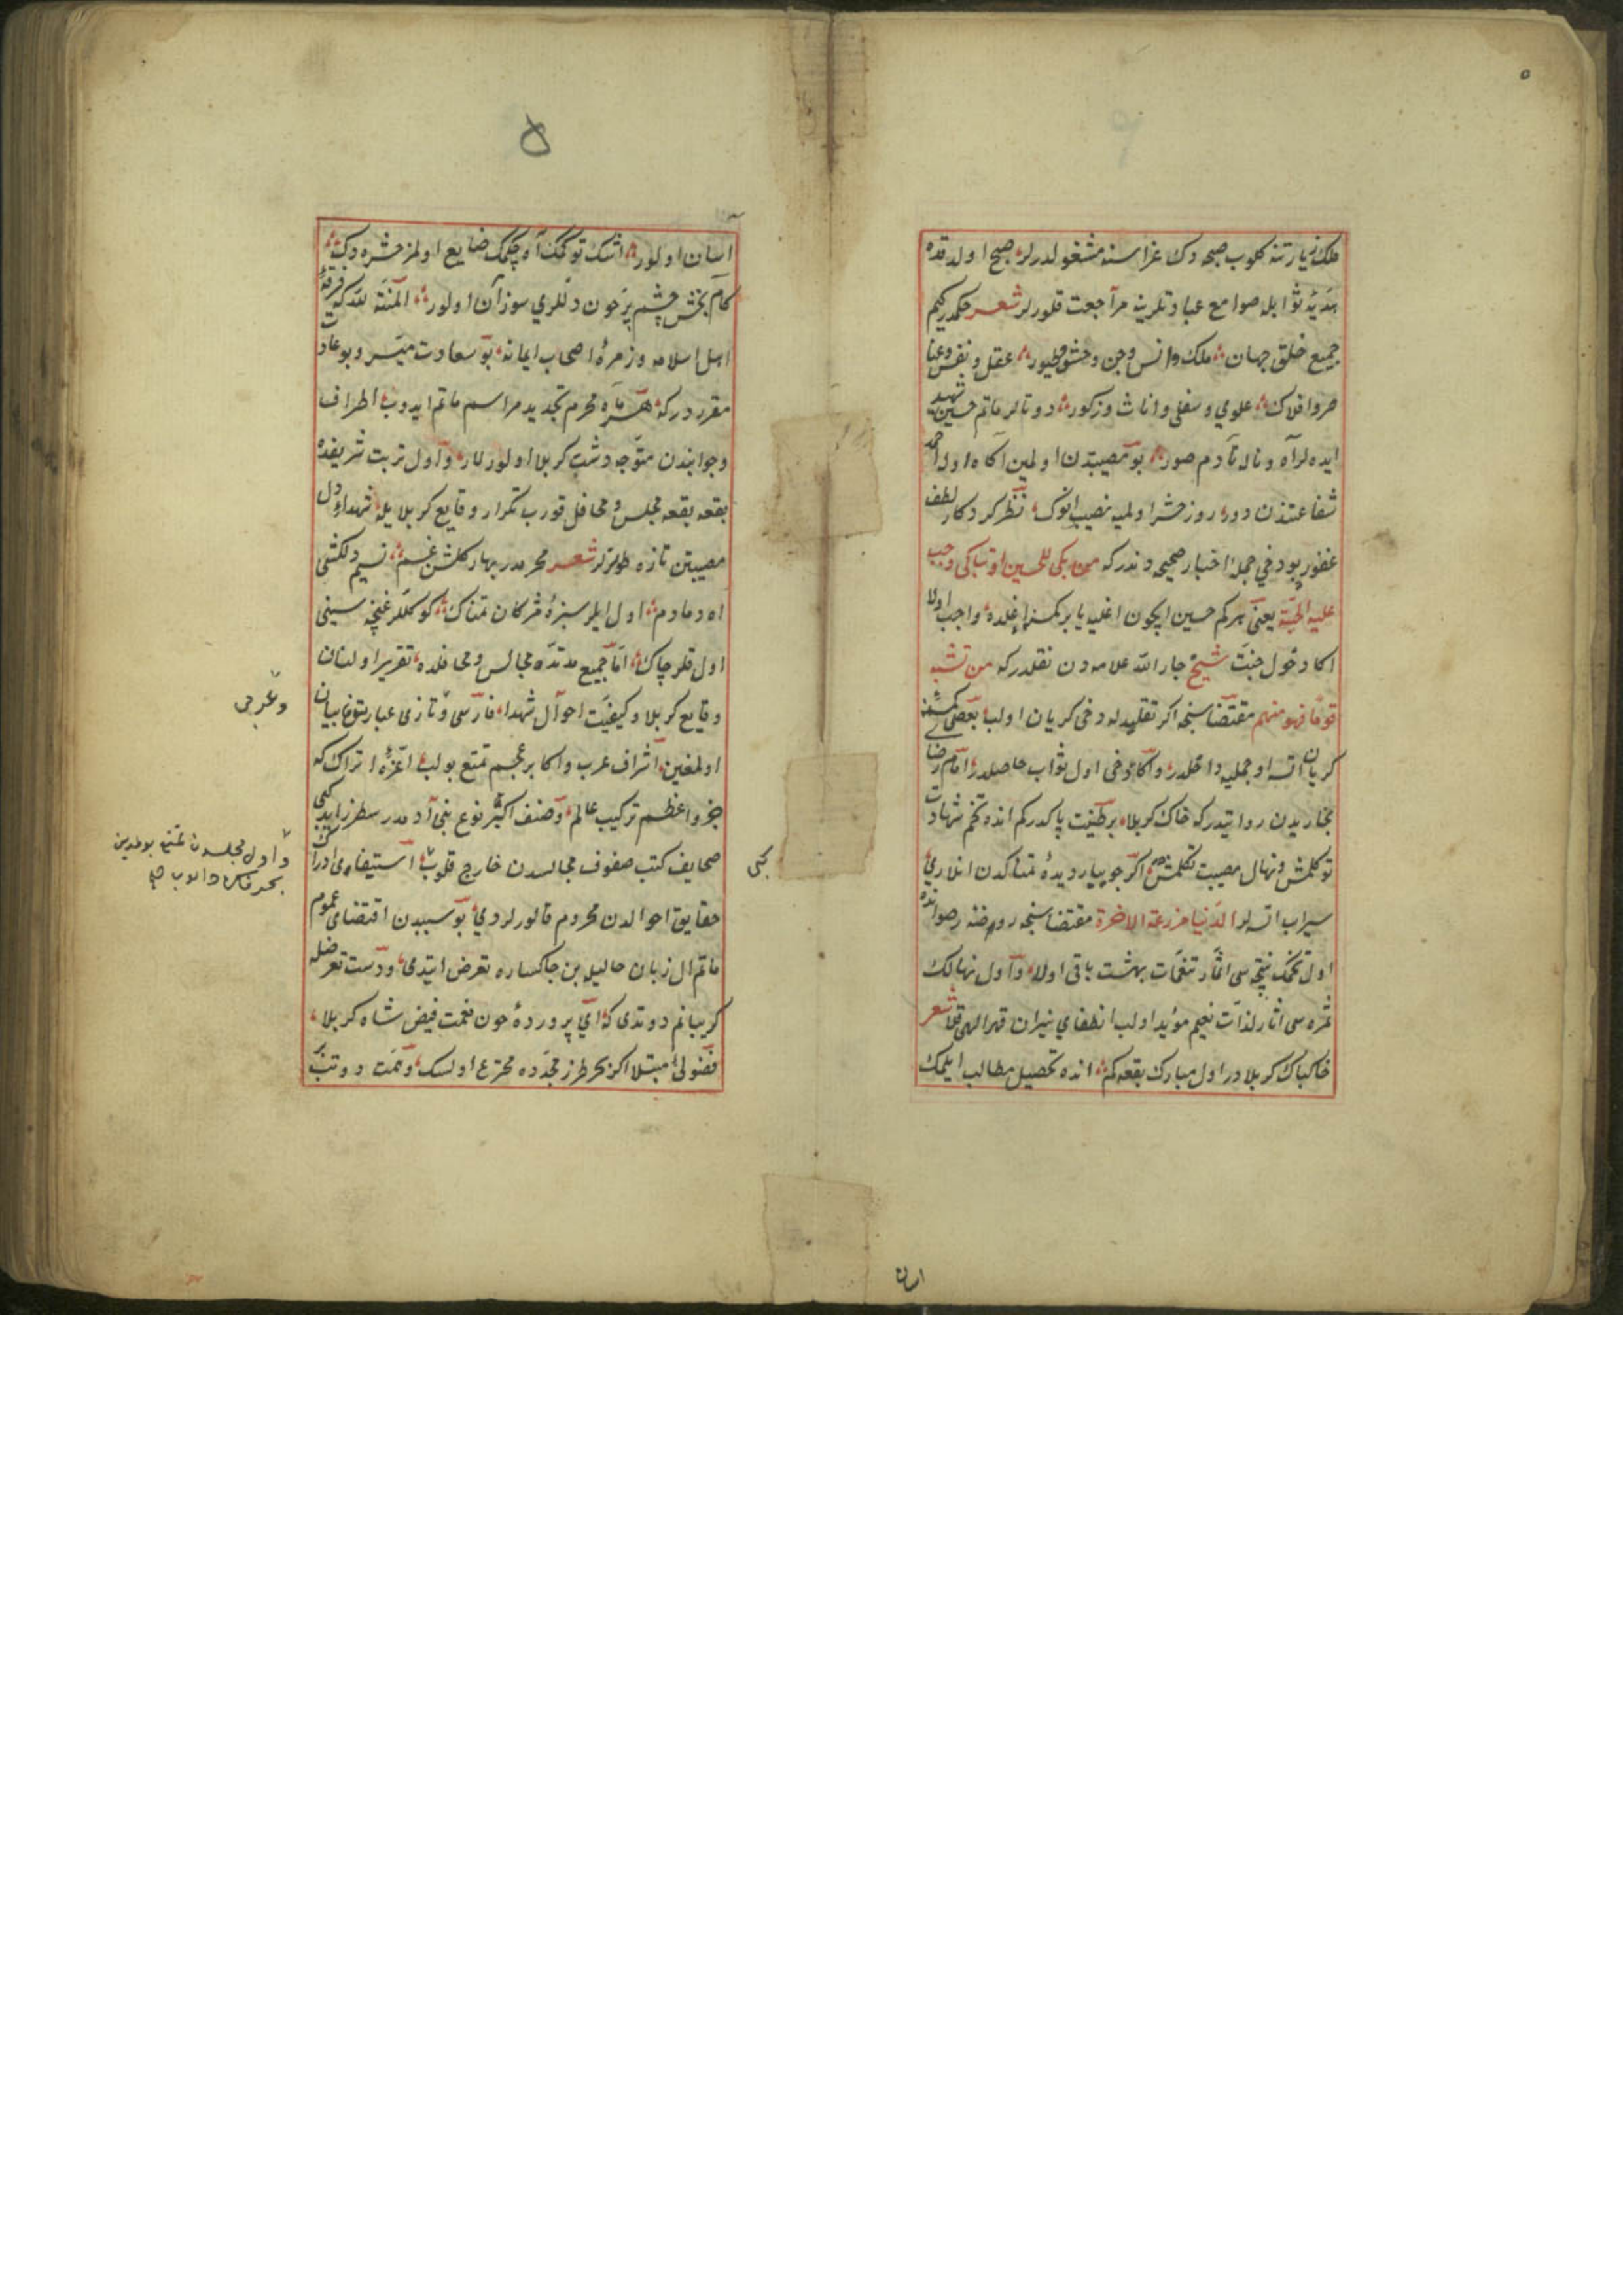 ٥
ملك زيارتنه كلوب صبحه دك عزاسنه مشغولدرلر صبح اولدقده
هديۀ ثوابله صوامع عبادتلرينه مراجعت قلورلر شعر حكمدر كيم
جميع خلق جهان ملك وانس وجن ووحش وطيور عقل ونفس وعنا
صر وافلاك علوي وسفلي واناث وذكور دوتالر ماتم حسين شهيد
ايده لر آه وناله تا دم صور بو مصيبتدن اولمين آكاه اولە احمد
شفاعتندن دور روز حشر اولميه نصيب انوك نظر كردكار لطف
غفور بو دخي جملۀ اخبار صحيحه دندر كه من ابكى للحسين او تباكى وجب
عليه الجنة يعني هر كم حسين ايچون اغليه يا بر كمسنه اغلده واجب اولا
اكا دخول جنت شيخ جار الله علامه دن نقلدر كه من تشبه
قوما فهو منهم مقتضاسنجه اكر تقليدله دخي كريان اولب بعضي كمسنه
كريان اتسه او جمليه داخلدر واكا دخي اول ثواب حاصلدر امام رضا
بخاريدن روايتدر كه خاك كربلا بر طينت پاكدر كم انده تخم شهادت
توكلمش ونهال مصيبت تكلمش اكر جويبار ديدۀ نمناكدن انلاري
سيراب اتسه لر الدنيا مزرعة الاخرة مقتضاسنجه روضۀ رضوانده
اول تخمك نتيجه سى اثمار تنعمات بهشت باقى اولا واول نهالك
ثمره سى اثار لذات نعيم مؤيد اولب انطفاي نيران قهر الهى قلا شعر
خاكپاك كربلا در اول مبارك بقعه كم انده تحصيل مطالب ايلمك
اسان
٥
اسان اولور اشك توكمك آه چكمك ضايع اولمز حشره دك
كام بخش چشم پرخون دللري سوزان اولور المنة لله كه فرقۀ
اهل اسلامه وزمرۀ اصحاب ايمانه بو سعادت ميسر وبو عادت
مقرردر كه هر ماه محرم تجديد مراسم ماتم ايدوب اطراف
وجوانبدن متوجه دشت كربلا اولورلار واول تربت شريفده
بقعه بقعه مجلس ومحافل قورب تكرار وقايع كربلا يله شهداء دل
مصيبتن تازه طوترلر شعر محرمدر بهار كلشن غم نسيم دلكشى
اه دمادم اول ايلر سبزۀ مژكان نمناك كوكللر غنچه سينى
اول قلر چاك اما جميع مدتده مجالس ومحافلده تقرير اولنان
وقايع كربلا وكيفيت احوال شهدا فارسى وتازى عبارتنده بيان
اولمغين اشراف عرب واكابر عجم تمتع بولب اعزۀ اتراك كه
جزو اعظم تركيب عالم وصنف اكثر نوع بنى آدمدر سطر زايد كبى
صحايف كتب صفوف مجالسدن خارج قلوب استيفاى ادراك
حقايق احوالدن محروم قالورلردي بو سببدن اقتضاى عموم
ماتم ال زبان حاليله بن خاكساره تعرض ايتدى ودست تعرضله
كريبانم دوتدى كه اي پروردۀ خون نعمت فيض شاه كربلا
فضولي مبتلا اكر بر طرز مجدده مخترع اولسك وهمت دوتب
وعربى
واول مجلسدن تمتع بولمدين
كبى